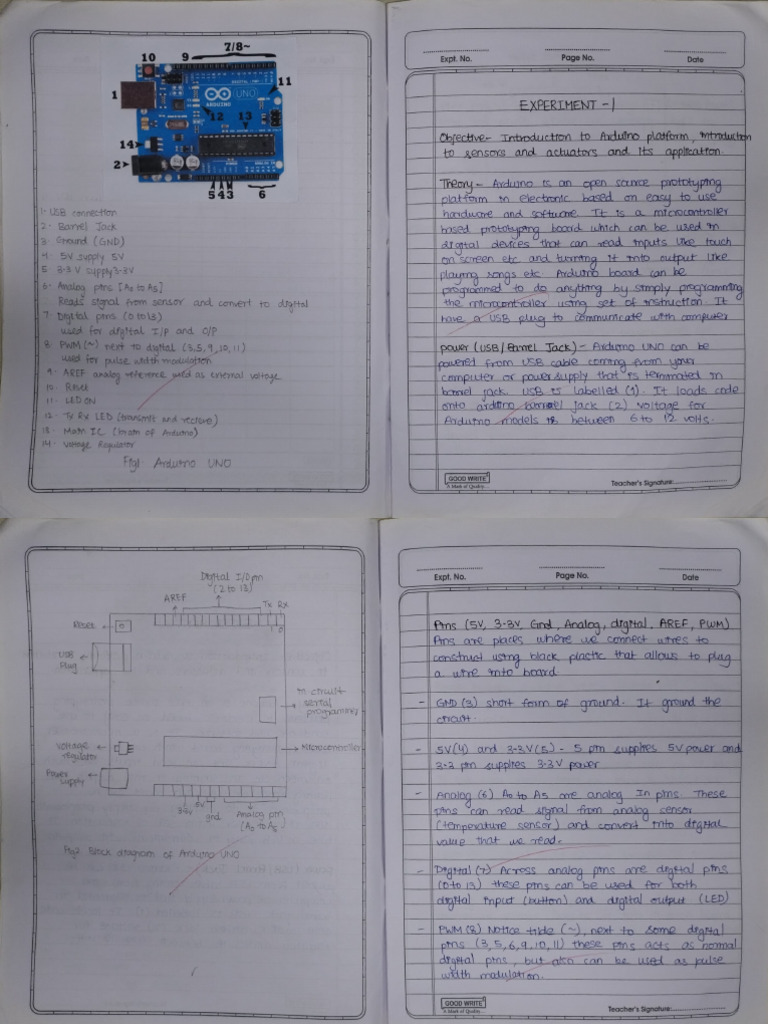 10 9 7/8~
11
1
UNO
ARDUINO
12
13
14
2
5 4 3 6
1. USB connection
2. Barrel Jack
3. Ground (GND)
4. 5V supply 5V
5. 3.3 V supply 3.3V
6. Analog pins [A0 to A5]
Reads signal from sensor and convert to digital
7. Digital pins (0 to 13)
used for digital I/P and O/P
8. PWM (~) next to digital (3,5,9,10,11)
used for pulse width modulation
9. AREF analog reference used as external voltage
10. Reset
11. LED ON
12. Tx Rx LED (transmit and recieve)
13. Main IC (brain of Arduino)
14. Voltage Regulator
Fig1 Arduino UNO
Expt. No. Page No. Date
EXPERIMENT - 1
Objective- Introduction to Arduino platform, introduction
to sensors and actuators and its application.
Theory- Arduino is an open source prototyping
platform in electronic based on easy to use
hardware and software. It is a microcontroller
based prototyping board which can be used in
digital devices that can read inputs like touch
on screen etc and turning it into output like
playing songs etc. Arduino board can be
programmed to do anything by simply programming
the microcontroller using set of instruction. It
have a USB plug to communicate with computer
power (USB/Barrel Jack)- Arduino UNO can be
powered from USB cable coming from your
computer or power supply that is terminated in
barrel jack. USB is labelled (1). It loads code
onto arduino barrel jack (2) voltage for
Arduino models is between 6 to 12 volts.
GOOD WRITE
A Mark of Quality...
Teacher's Signature:
Digital I/O pin
(2 to 13)
AREF
Tx Rx
1 0
Reset
USB
Plug
in circuit
serial
programming
Voltage
regulator
Microcontroller
Power
supply
3.3V 5V gnd
Analog pin
(A0 to A5)
Fig2 Block diagram of Arduino UNO
Expt. No. Page No. Date
Pins (5V, 3.3V, Gnd, Analog, digital, AREF, PWM)
Pins are places where we connect wires to
construct using black plastic that allows to plug
a wire into board.
- GND (3) short form of ground. It ground the
circuit.
- 5V(4) and 3.3V(5) - 5 pin supplies 5V power and
3.3 pin supplies 3.3V power
- Analog (6) A0 to A5 are analog In pins. These
pins can read signal from analog censor
(temperature sensor) and convert into digital
value that we read.
- Digital (7) Across analog pins are digital pins
(0 to 13) these pins can be used for both
digital input (button) and digital output (LED)
- PWM (8) Notice tilde (~), next to some digital
pins (3,5,6,9,10,11) these pins acts as normal
digital pins, but also can be used as pulse
width modulation.
GOOD WRITE
A Mark of Quality...
Teacher's Signature: